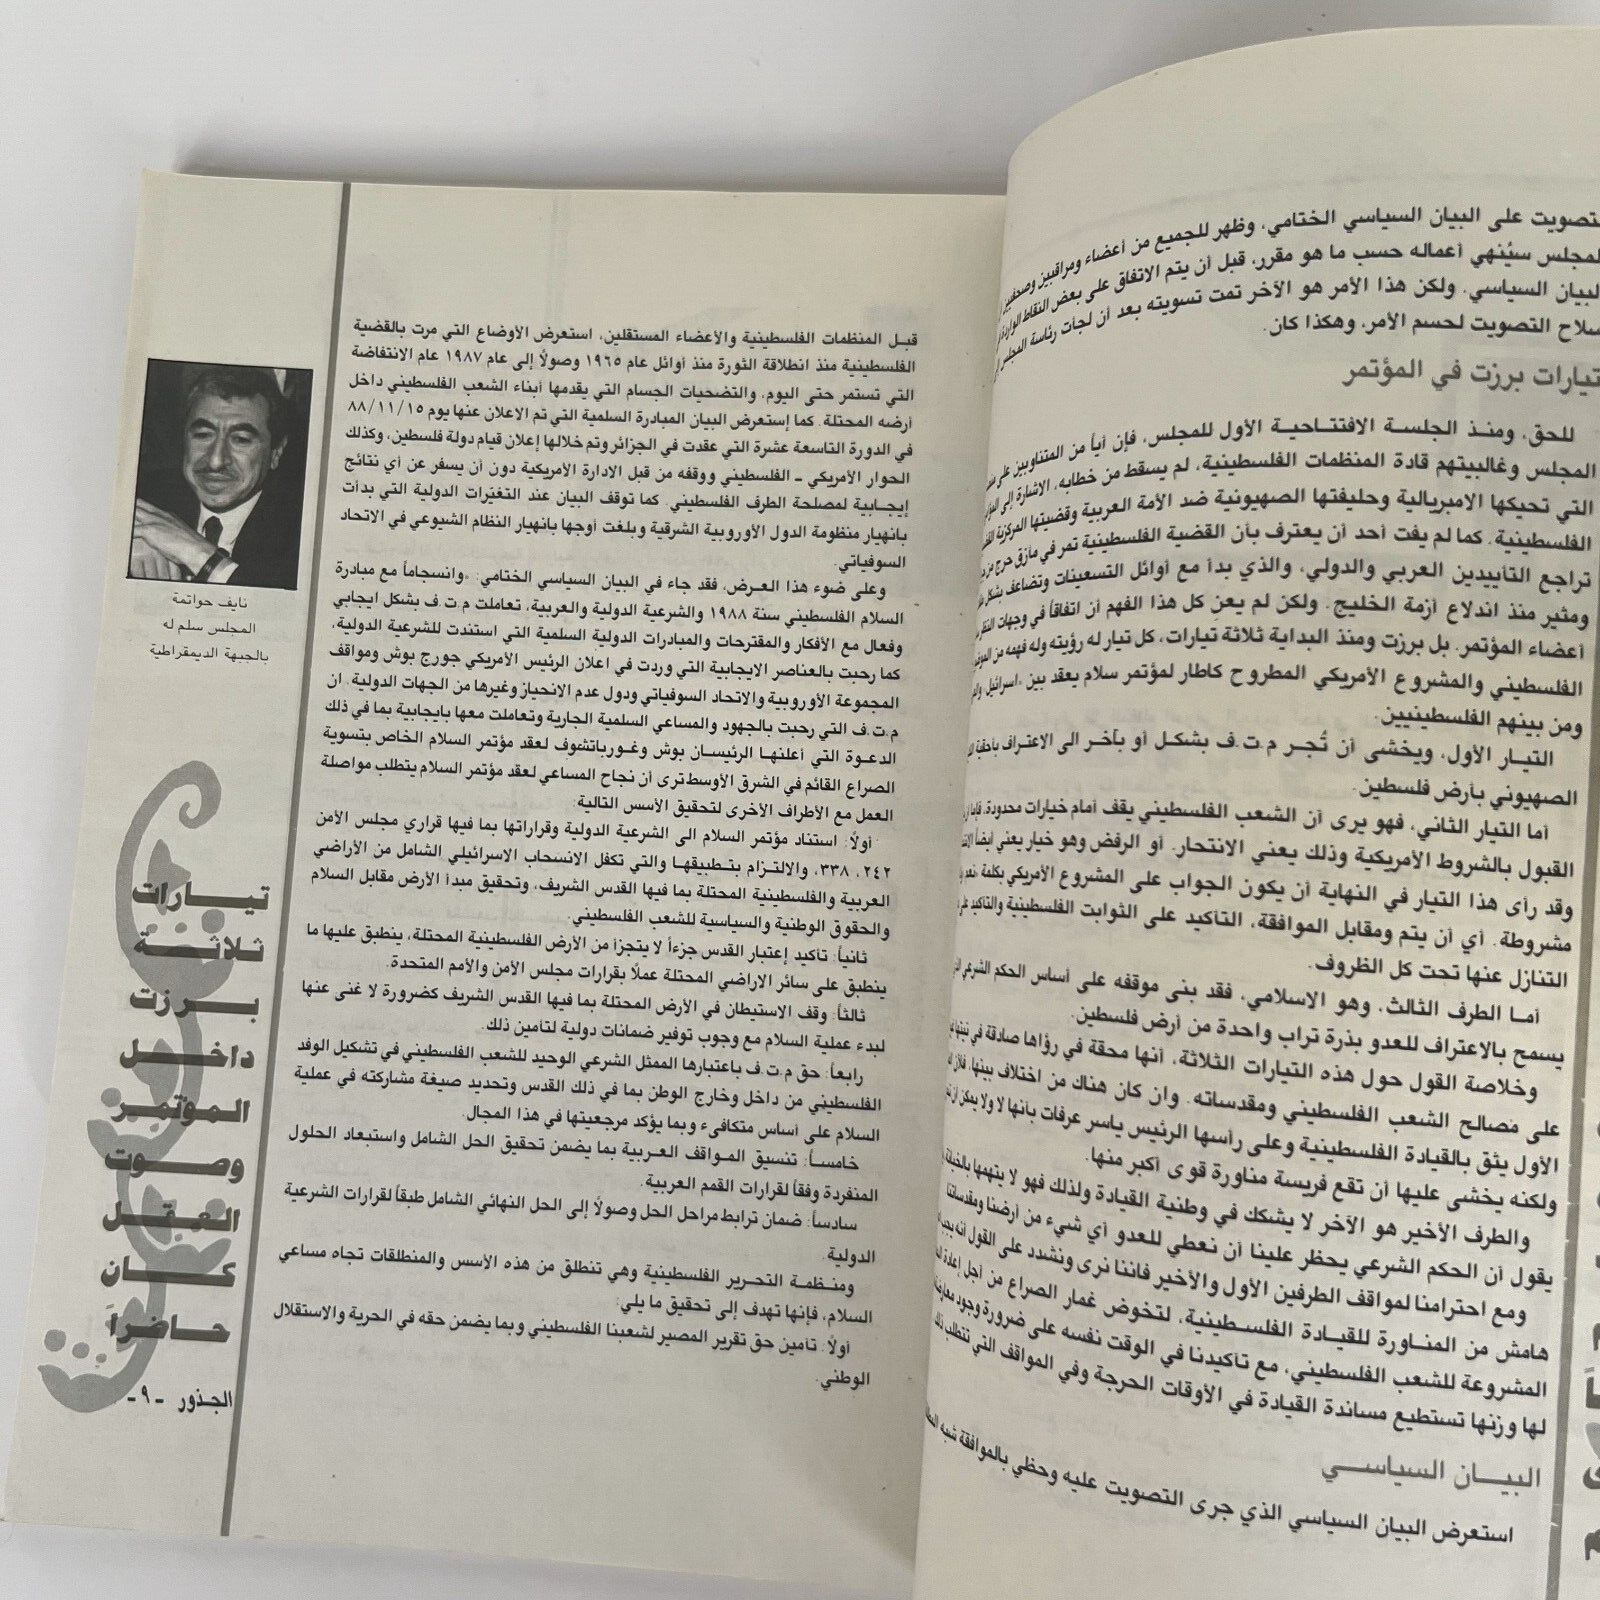 لتصويت على البيان السياسي الختامي، وظهر للجميع من أعضاء ومراقبين وصحفيين
لمجلس سيُنهي أعماله حسب ما هو مقرر، قبل أن يتم الاتفاق على بعض النقاط الواردة
لبيان السياسي. ولكن هذا الأمر هو الآخر تمت تسويته بعد أن لجأت رئاسة المجلس
سلاح التصويت لحسم الأمر، وهكذا كان.
تيارات برزت في المؤتمر
للحق، ومنذ الجلسة الافتتاحية الأول للمجلس، فإن أياً من المتناوبين على
المجلس وغالبيتهم قادة المنظمات الفلسطينية، لم يسقط من خطابه، الاشارة إلى
التي تحيكها الامبريالية وحليفتها الصهيونية ضد الأمة العربية وقضيتها المركزية
الفلسطينية. كما لم يفت أحد أن يعترف بأن القضية الفلسطينية تمر في مأزق حرج
تراجع التأييدين العربي والدولي، والذي بدأ مع أوائل التسعينات وتضاعف بشكل
ومثير منذ اندلاع أزمة الخليج. ولكن لم يعن كل هذا الفهم أن اتفاقاً في وجهات النظر
أعضاء المؤتمر. بل برزت ومنذ البداية ثلاثة تيارات، كل تيار له رؤيته وله فهمه من
الفلسطيني والمشروع الأمريكي المطروح كاطار لمؤتمر سلام يعقد بين «اسرائيل
ومن بينهم الفلسطينيين.
التيار الأول، ويخشى أن تُجر م.ت.ف بشكل أو بآخر الى الاعتراف بأحقية
الصهيوني بأرض فلسطين.
أما التيار الثاني، فهو يرى أن الشعب الفلسطيني يقف أمام خيارات محدودة،
القبول بالشروط الأمريكية وذلك يعني الانتحار. أو الرفض وهو خيار يعني أيضاً
وقد رأى هذا التيار في النهاية أن يكون الجواب على المشروع الأمريكي بكلمة «نعم
مشروطة. أي أن يتم ومقابل الموافقة، التأكيد على الثوابت الفلسطينية والتأكيد
التنازل عنها تحت كل الظروف.
أما الطرف الثالث، وهو الاسلامي، فقد بنى موقفه على أساس الحكم الشرعي
يسمح بالاعتراف للعدو بذرة تراب واحدة من أرض فلسطين.
وخلاصة القول حول هذه التيارات الثلاثة، أنها محقة في رؤاها صادقة في
على مصالح الشعب الفلسطيني ومقدساته. وان كان هناك من اختلاف بينها،
الأول يثق بالقيادة الفلسطينية وعلى رأسها الرئيس ياسر عرفات بأنها لا ولا يمكن
ولكنه يخشى عليها أن تقع فريسة مناورة قوى أكبر منها.
والطرف الأخير هو الآخر لا يشكك في وطنية القيادة ولذلك فهو لا يتهمها
يقول أن الحكم الشرعي يحظر علينا أن نعطي للعدو أي شيء من أرضنا ومقدساتنا
ومع احترامنا لمواقف الطرفين الأول والأخير فاننا نرى ونشدد على القول أنه
هامش من المناورة للقيادة الفلسطينية، لتخوض غمار الصراع من أجل إعادة
المشروعة للشعب الفلسطيني، مع تأكيدنا في الوقت نفسه على ضرورة وجود
لها وزنها تستطيع مساندة القيادة في الأوقات الحرجة وفي المواقف التي تتطلب ذلك
البيان السياسي
استعرض البيان السياسي الذي جرى التصويت عليه وحظي بالموافقة شبه
قبل المنظمات الفلسطينية والأعضاء المستقلين، استعرض الأوضاع التي مرت بالقضية
الفلسطينية منذ انطلاقة الثورة منذ أوائل عام ١٩٦٥ وصولًا إلى عام ١٩٨٧ عام الانتفاضة
التي تستمر حتى اليوم، والتضحيات الجسام التي يقدمها أبناء الشعب الفلسطيني داخل
أرضه المحتلة. كما إستعرض البيان المبادرة السلمية التي تم الاعلان عنها يوم ٨٨/١١/١٥
في الدورة التاسعة عشرة التي عقدت في الجزائر وتم خلالها إعلان قيام دولة فلسطين، وكذلك
الحوار الأمريكي ـ الفلسطيني ووقفه من قبل الادارة الأمريكية دون أن يسفر عن أي نتائج
إيجابية لمصلحة الطرف الفلسطيني. كما توقف البيان عند التغيّرات الدولية التي بدأت
بانهيار منظومة الدول الأوروبية الشرقية وبلغت أوجها بانهيار النظام الشيوعي في الاتحاد
السوفياتي.
وعلى ضوء هذا العرض، فقد جاء في البيان السياسي الختامي: «وانسجاماً مع مبادرة
السلام الفلسطيني سنة ١٩٨٨ والشرعية الدولية والعربية، تعاملت م.ت.ف بشكل ايجابي
وفعال مع الأفكار والمقترحات والمبادرات الدولية السلمية التي استندت للشرعية الدولية،
كما رحبت بالعناصر الايجابية التي وردت في اعلان الرئيس الأمريكي جورج بوش ومواقف
المجموعة الأوروبية والاتحاد السوفياتي ودول عدم الانحياز وغيرها من الجهات الدولية. ان
م.ت.ف التي رحبت بالجهود والمساعي السلمية الجارية وتعاملت معها بايجابية بما في ذلك
الدعوة التي أعلنها الرئيسان بوش وغورباتشوف لعقد مؤتمر السلام الخاص بتسوية
الصراع القائم في الشرق الأوسط ترى أن نجاح المساعي لعقد مؤتمر السلام يتطلب مواصلة
العمل مع الأطراف الأخرى لتحقيق الأسس التالية:
أولًا: استناد مؤتمر السلام الى الشرعية الدولية وقراراتها بما فيها قراري مجلس الأمن
٢٤٢، ٣٣٨، والالتزام بتطبيقها والتي تكفل الانسحاب الاسرائيلي الشامل من الأراضي
العربية والفلسطينية المحتلة بما فيها القدس الشريف، وتحقيق مبدأ الأرض مقابل السلام
والحقوق الوطنية والسياسية للشعب الفلسطيني.
ثانياً: تأكيد إعتبار القدس جزءاً لا يتجزأ من الأرض الفلسطينية المحتلة، ينطبق عليها ما
ينطبق على سائر الاراضي المحتلة عملًا بقرارات مجلس الأمن والأمم المتحدة.
ثالثاً: وقف الاستيطان في الأرض المحتلة بما فيها القدس الشريف كضرورة لا غنى عنها
لبدء عملية السلام مع وجوب توفير ضمانات دولية لتأمين ذلك.
رابعاً: حق م.ت.ف باعتبارها الممثل الشرعي الوحيد للشعب الفلسطيني في تشكيل الوفد
الفلسطيني من داخل وخارج الوطن بما في ذلك القدس وتحديد صيغة مشاركته في عملية
السلام على أساس متكافىء وبما يؤكد مرجعيتها في هذا المجال.
خامساً: تنسيق المواقف العربية بما يضمن تحقيق الحل الشامل واستبعاد الحلول
المنفردة وفقاً لقرارات القمم العربية.
سادساً: ضمان ترابط مراحل الحل وصولًا إلى الحل النهائي الشامل طبقاً لقرارات الشرعية
الدولية.
ومنظمة التحرير الفلسطينية وهي تنطلق من هذه الأسس والمنطلقات تجاه مساعي
السلام، فإنها تهدف إلى تحقيق ما يلي:
أولًا: تأمين حق تقرير المصير لشعبنا الفلسطيني وبما يضمن حقه في الحرية والاستقلال
الوطني.
نايف حواتمة
المجلس سلم له
بالجبهة الديمقراطية
تيارات
ثلاثة
برزت
داخل
المؤتمر
وصوت
العقل
كان
حاضراً
الجذور -٩-